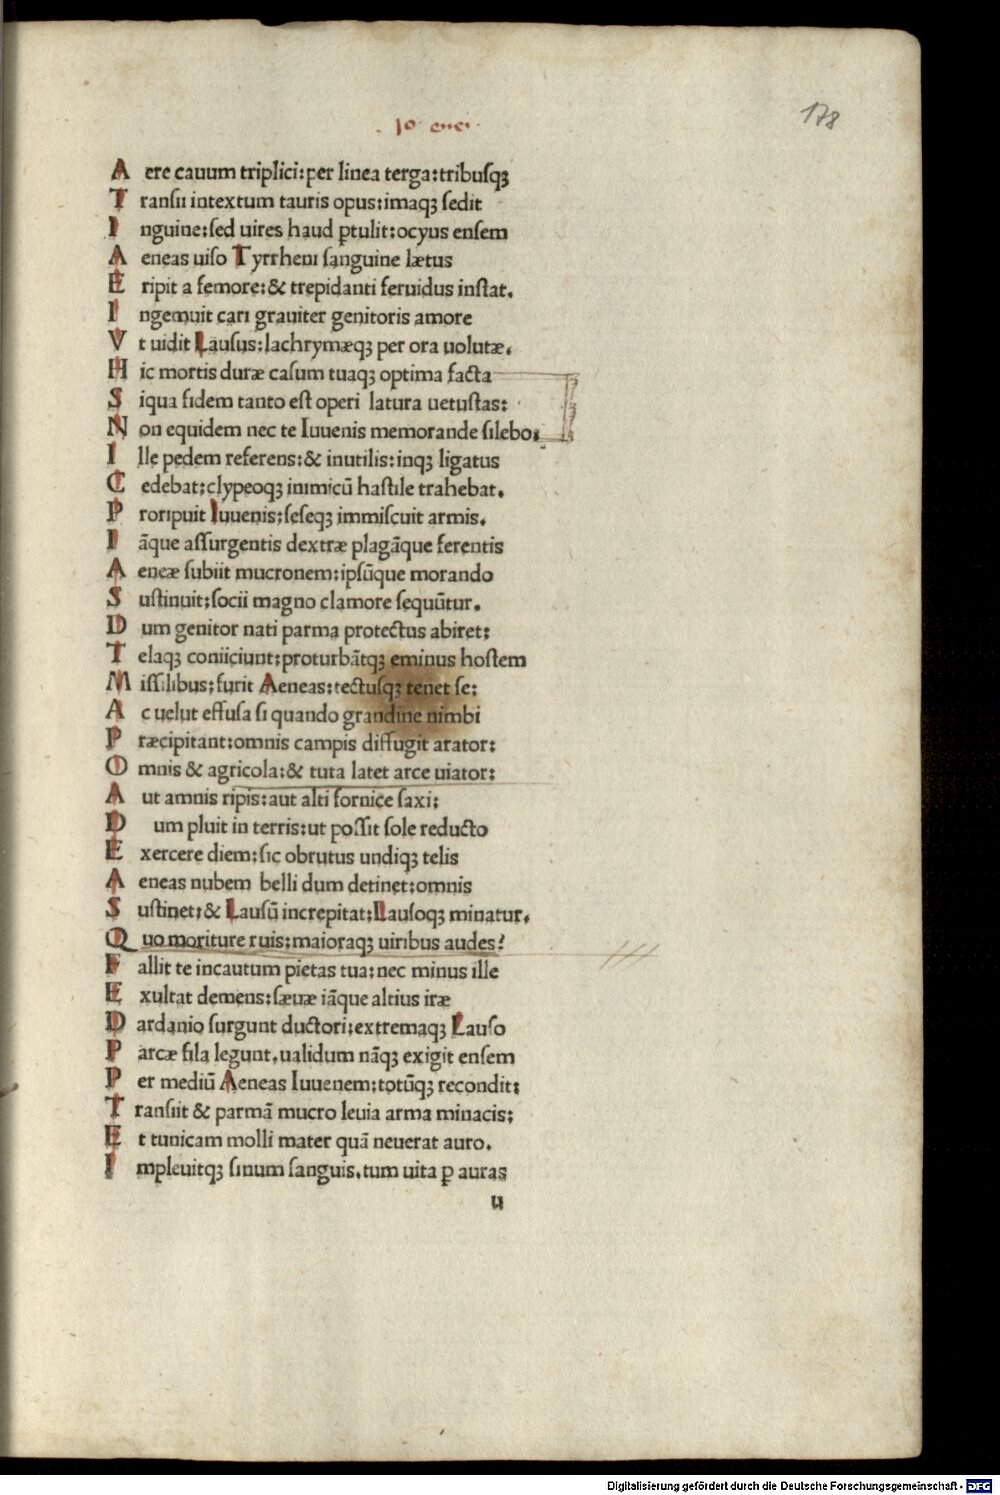 10 enei
178
A ere cauum triplici:per linea terga:tribusqꝫ
T ransii intextum tauris opus:imaqꝫ sedit
I nguine:sed uires haud ꝑtulit:ocyus ensem
A eneas uiso Tyrrheni sanguine lætus
E ripit a femore:& trepidanti feruidus instat.
I ngemuit cari grauiter genitoris amore
V t uidit Lausus:lachrymæqꝫ per ora uolutæ.
H ic mortis duræ casum tuaqꝫ optima facta
S iqua fidem tanto est operi latura uetustas:
N on equidem nec te Iuuenis memorande silebo;
I lle pedem referens:& inutilis:inqꝫ ligatus
C edebat;clypeoqꝫ inimicū hastile trahebat.
P roripuit Iuuenis;seseqꝫ immiscuit armis.
I āque assurgentis dextræ plagāque ferentis
A eneæ subiit mucronem:ipsūque morando
S ustinuit;socii magno clamore sequūtur.
D um genitor nati parma protectus abiret;
T elaqꝫ coniiciunt;proturbātqꝫ eminus hostem
M issilibus;furit Aeneas:tectusqꝫ tenet se;
A c uelut effusa si quando grandine nimbi
P ræcipitant:omnis campis diffugit arator:
O mnis & agricola:& tuta latet arce uiator:
A ut amnis ripis:aut alti fornice saxi;
D um pluit in terris:ut possit sole reducto
E xercere diem;sic obrutus undiqꝫ telis
A eneas nubem belli dum detinet:omnis
S ustinet;& Lausū increpitat;Lausoqꝫ minatur.
Q uo moriture ruis;maioraqꝫ uiribus audes?
F allit te incautum pietas tua:nec minus ille
E xultat demens:sæuæ iāque altius iræ
D ardanio surgunt ductori;extremaqꝫ Lauso
P arcæ fila legunt.ualidum nāqꝫ exigit ensem
P er mediū Aeneas Iuuenem;totūqꝫ recondit;
T ransiit & parmā mucro leuia arma minacis;
E t tunicam molli mater quā neuerat auro.
I mpleuitqꝫ sinum sanguis.tum uita ꝑ auras
u
Digitalisierung gefördert durch die Deutsche Forschungsgemeinschaft - DFG